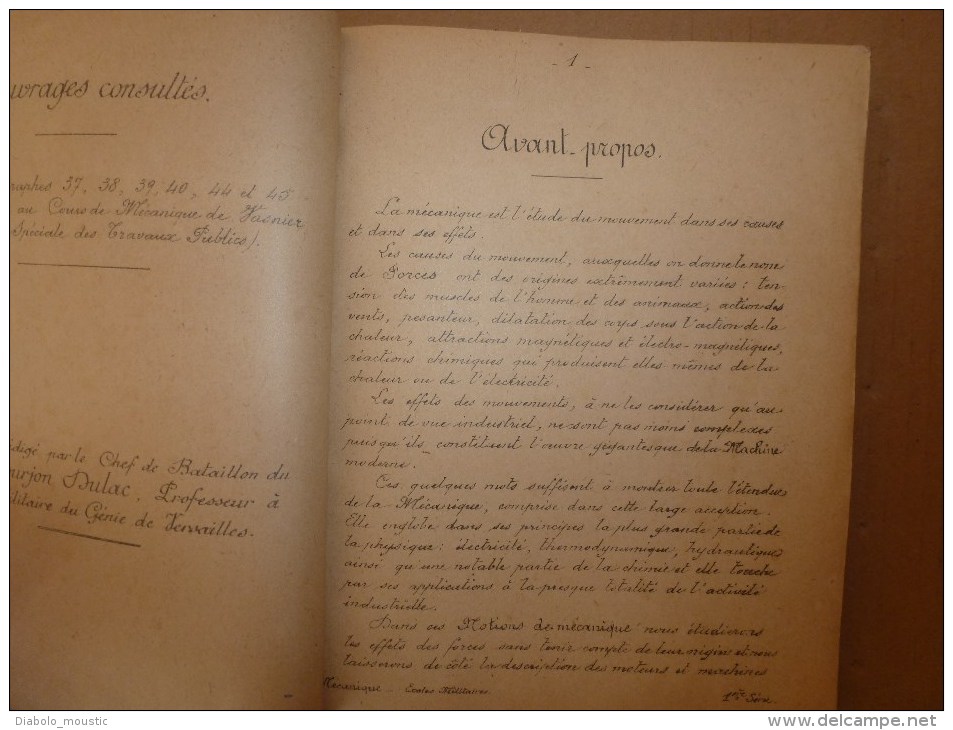 uvrages consultés.
raphes 37, 38, 39, 40, 44 et 45
au Cours de Mécanique de Vasnier
Spéciale des Travaux Publics).
digé par le Chef de Bataillon du
urjon Dulac, Professeur à
litaire du Génie de Versailles.
- 1 -
Avant-propos.
La mécanique est l'étude du mouvement dans ses causes
et dans ses effets.
Les causes du mouvement, auxquelles on donne le nom
de Forces ont des origines extrêmement variées : ten-
sion des muscles de l'homme et des animaux, action des
vents, pesanteur, dilatation des corps sous l'action de la
chaleur, attractions magnétiques et électro-magnétiques,
réactions chimiques qui produisent elles mêmes de la
chaleur ou de l'électricité.
Les effets des mouvements, à ne les considérer qu'au
point de vue industriel, ne sont pas moins complexes
puisqu'ils constituent l'œuvre gigantesque de la Machine
moderne.
Ces quelques mots suffisent à montrer toute l'étendue
de la Mécanique, comprise dans cette large acception.
Elle englobe dans ses principes la plus grande partie de
la physique : électricité, thermodynamique, hydraulique,
ainsi qu'une notable partie de la chimie et elle touche
par ses applications à la presque totalité de l'activité
industrielle.
Dans ces Notions de mécanique nous étudierons
les effets des forces sans tenir compte de leur origine et nous
laisserons de côté la description des moteurs et machines
Mécanique - Ecoles Militaires.
1ère Série.
Diabolo_moustic
delcampe.net